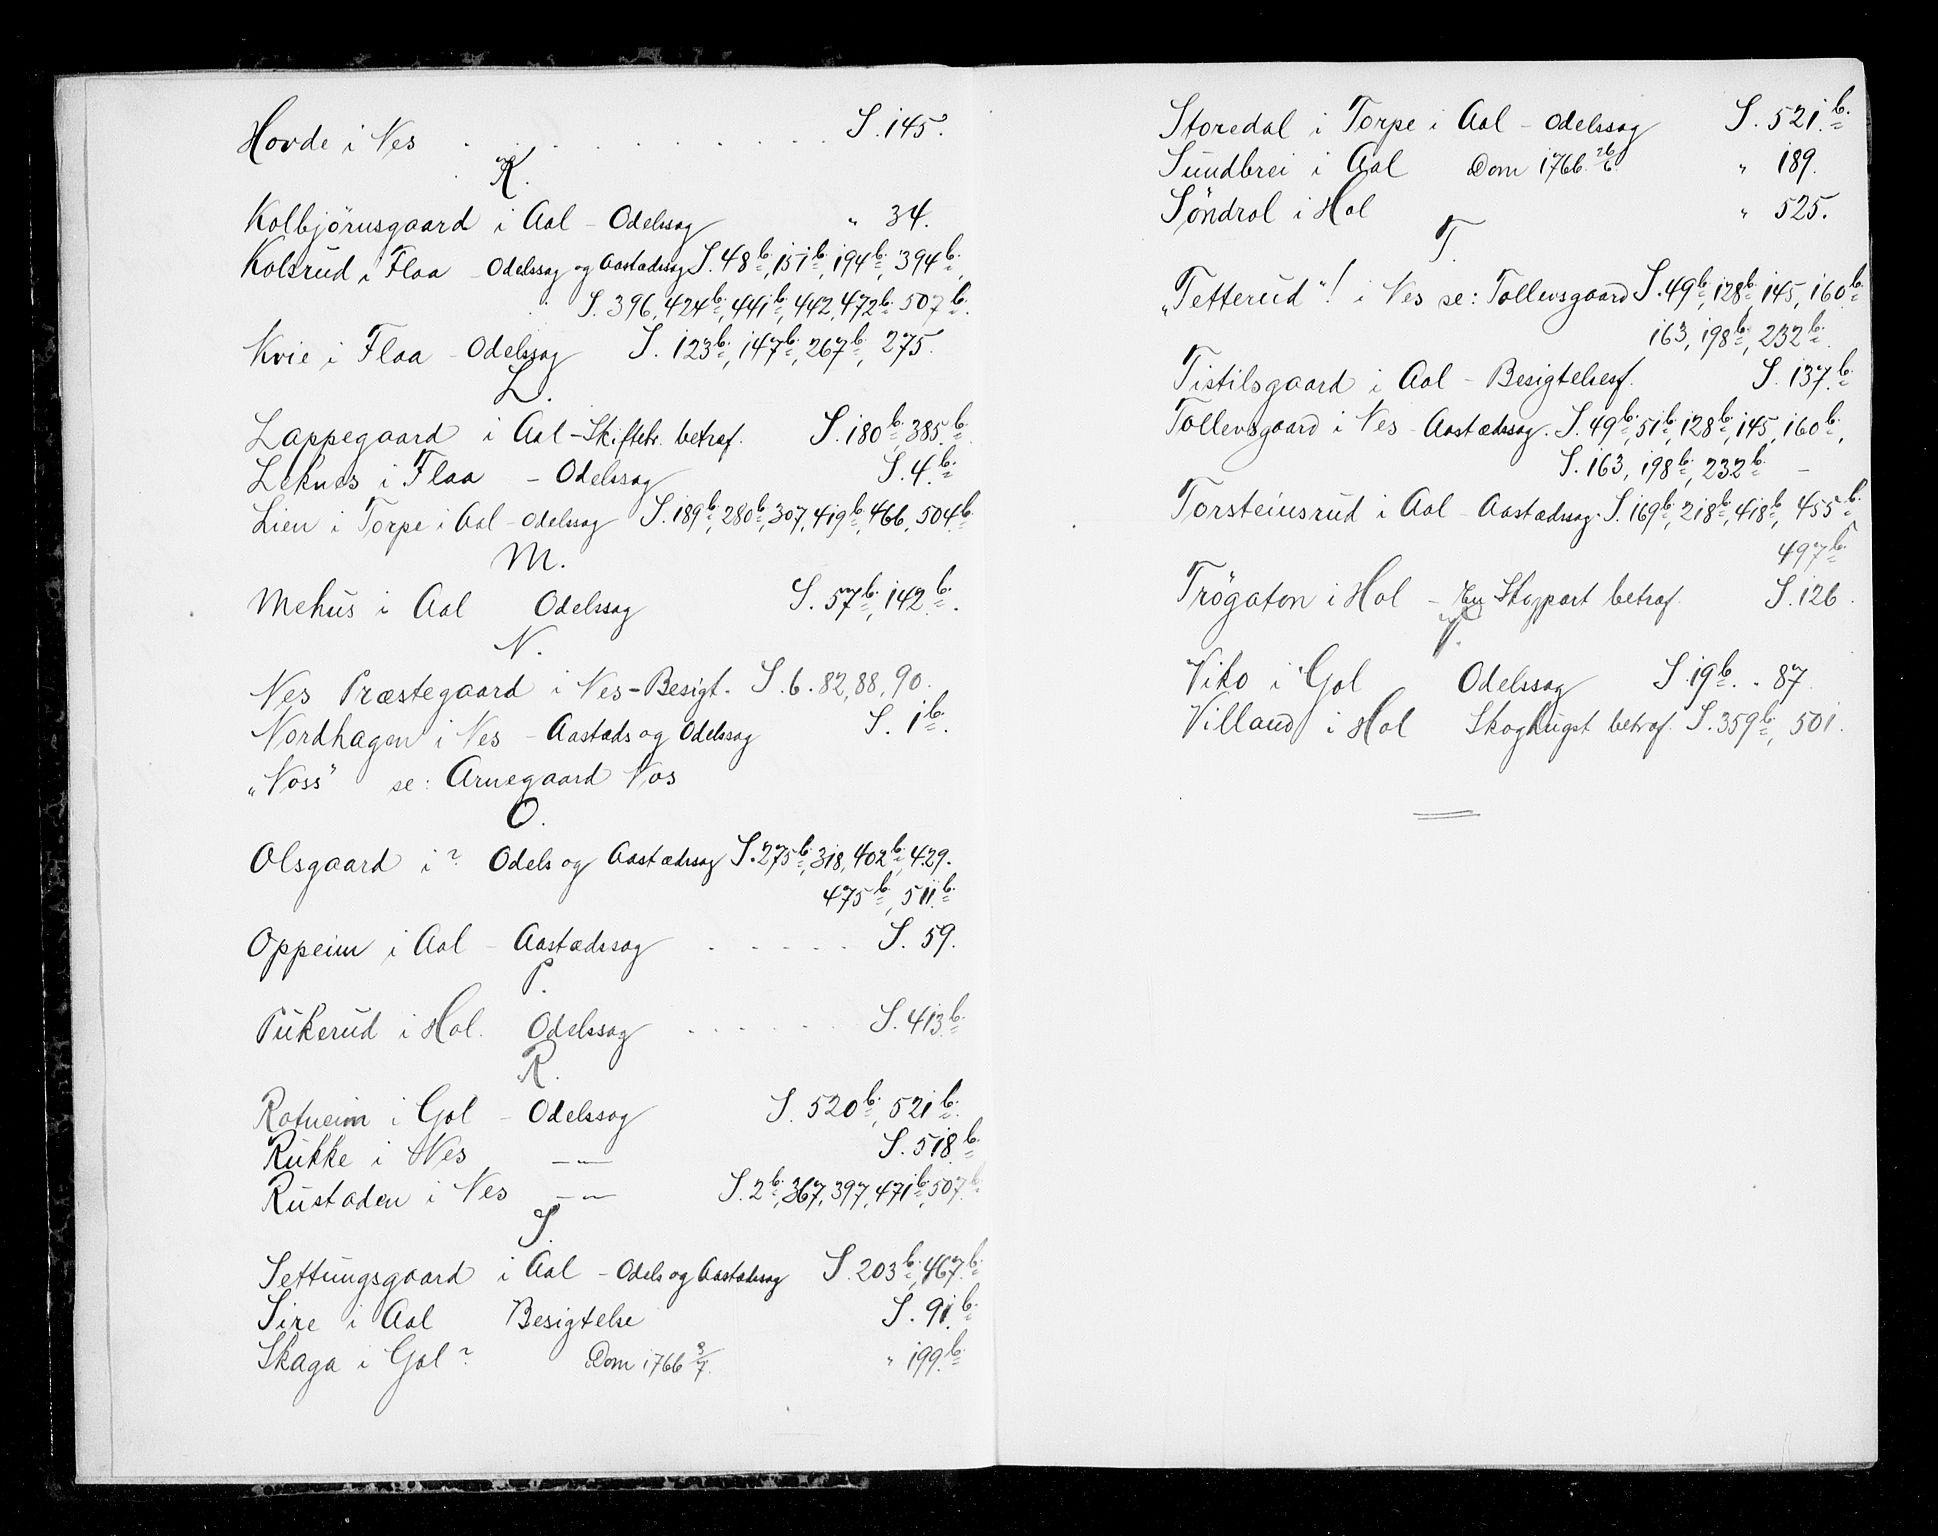 Hovde i Nes . . . . . . . . . S. 145.
K.
Kolbjörnsgaard i Aal – Odelssag „ 34.
Kolsrud i Flaa – Odelssag og Aastædssag S. 48 b., 151 b., 194 b., 394 b.,
S. 396, 424 b., 441 b., 442, 472 b. 507 b.
Kvie i Flaa – Odelssag S. 123 b., 147 b., 267 b., 275.
L.
Lappegaard i Aal – Skiftebr. betræf. S. 180 b., 385. b.
Leknes i Flaa – Odelssag S. 4. b.
Lien i Torpe i Aal – Odelssag S. 189 b., 280 b., 307, 419 b., 466, 504. b.
M.
Mehus i Aal Odelssag S. 57 b., 142. b.
N.
Nes Præstegaard i Nes – Besigt. S. 6. 82, 88, 90.
Nordhagen i Nes – Aastæds og Odelssag S. 1 b.
„Noss" se: Arnegaard Nos
O.
Olsgaard i ? Odels og Aastædssag S. 275 b., 318, 402 b., 429.
475 b., 511. b.
Oppeim i Aal – Aastædssag . . . . . . S. 59.
P.
Pukerud i Hol. Odelssag . . . . . . S. 413. b.
R.
Rotneim i Gol – Odelssag S. 520 b., 521 b.
Rukke i Nes – „ – S. 518. b.
Rustaden i Nes – „ – S. 2 b., 367, 397, 471 b., 507. b.
S.
Settungsgaard i Aal – Odels og Aastædssag S. 203 b., 467. b.
Sire i Aal Besigtelse S. 91. b.
Skaga i Gol ? Dom 1766 3/7. „ 199. b.
Storedal i Torpe i Aal – Odelssag S. 521. b.
Sundbrei i Aal Dom 1766. 26/6. „ 189.
Söndrol i Hol „ 525.
T.
„Tetterud"! i Nes se: Tollevsgaard S. 49 b., 128 b., 145, 160. b.
163, 198 b., 232 b.
Tistilsgaard i Aal – Besigtelsesf. S. 137. b.
Tollevsgaard i Nes – Aastædssag. S. 49 b., 51 b., 128 b., 145, 160 b.,
S. 163, 198 b., 232 b. –
Torsteinsrud i Aal – Aastædssag. S. 169 b., 218 b., 418 b., 455 b.
497 b.
Trögaton i Hol – En Skogpart betræf. S. 126.
V.
Viko i Gol Odelssag S. 19 b. . 87.
Villand i Hol Skoghugst betræf. S. 359 b., 501.